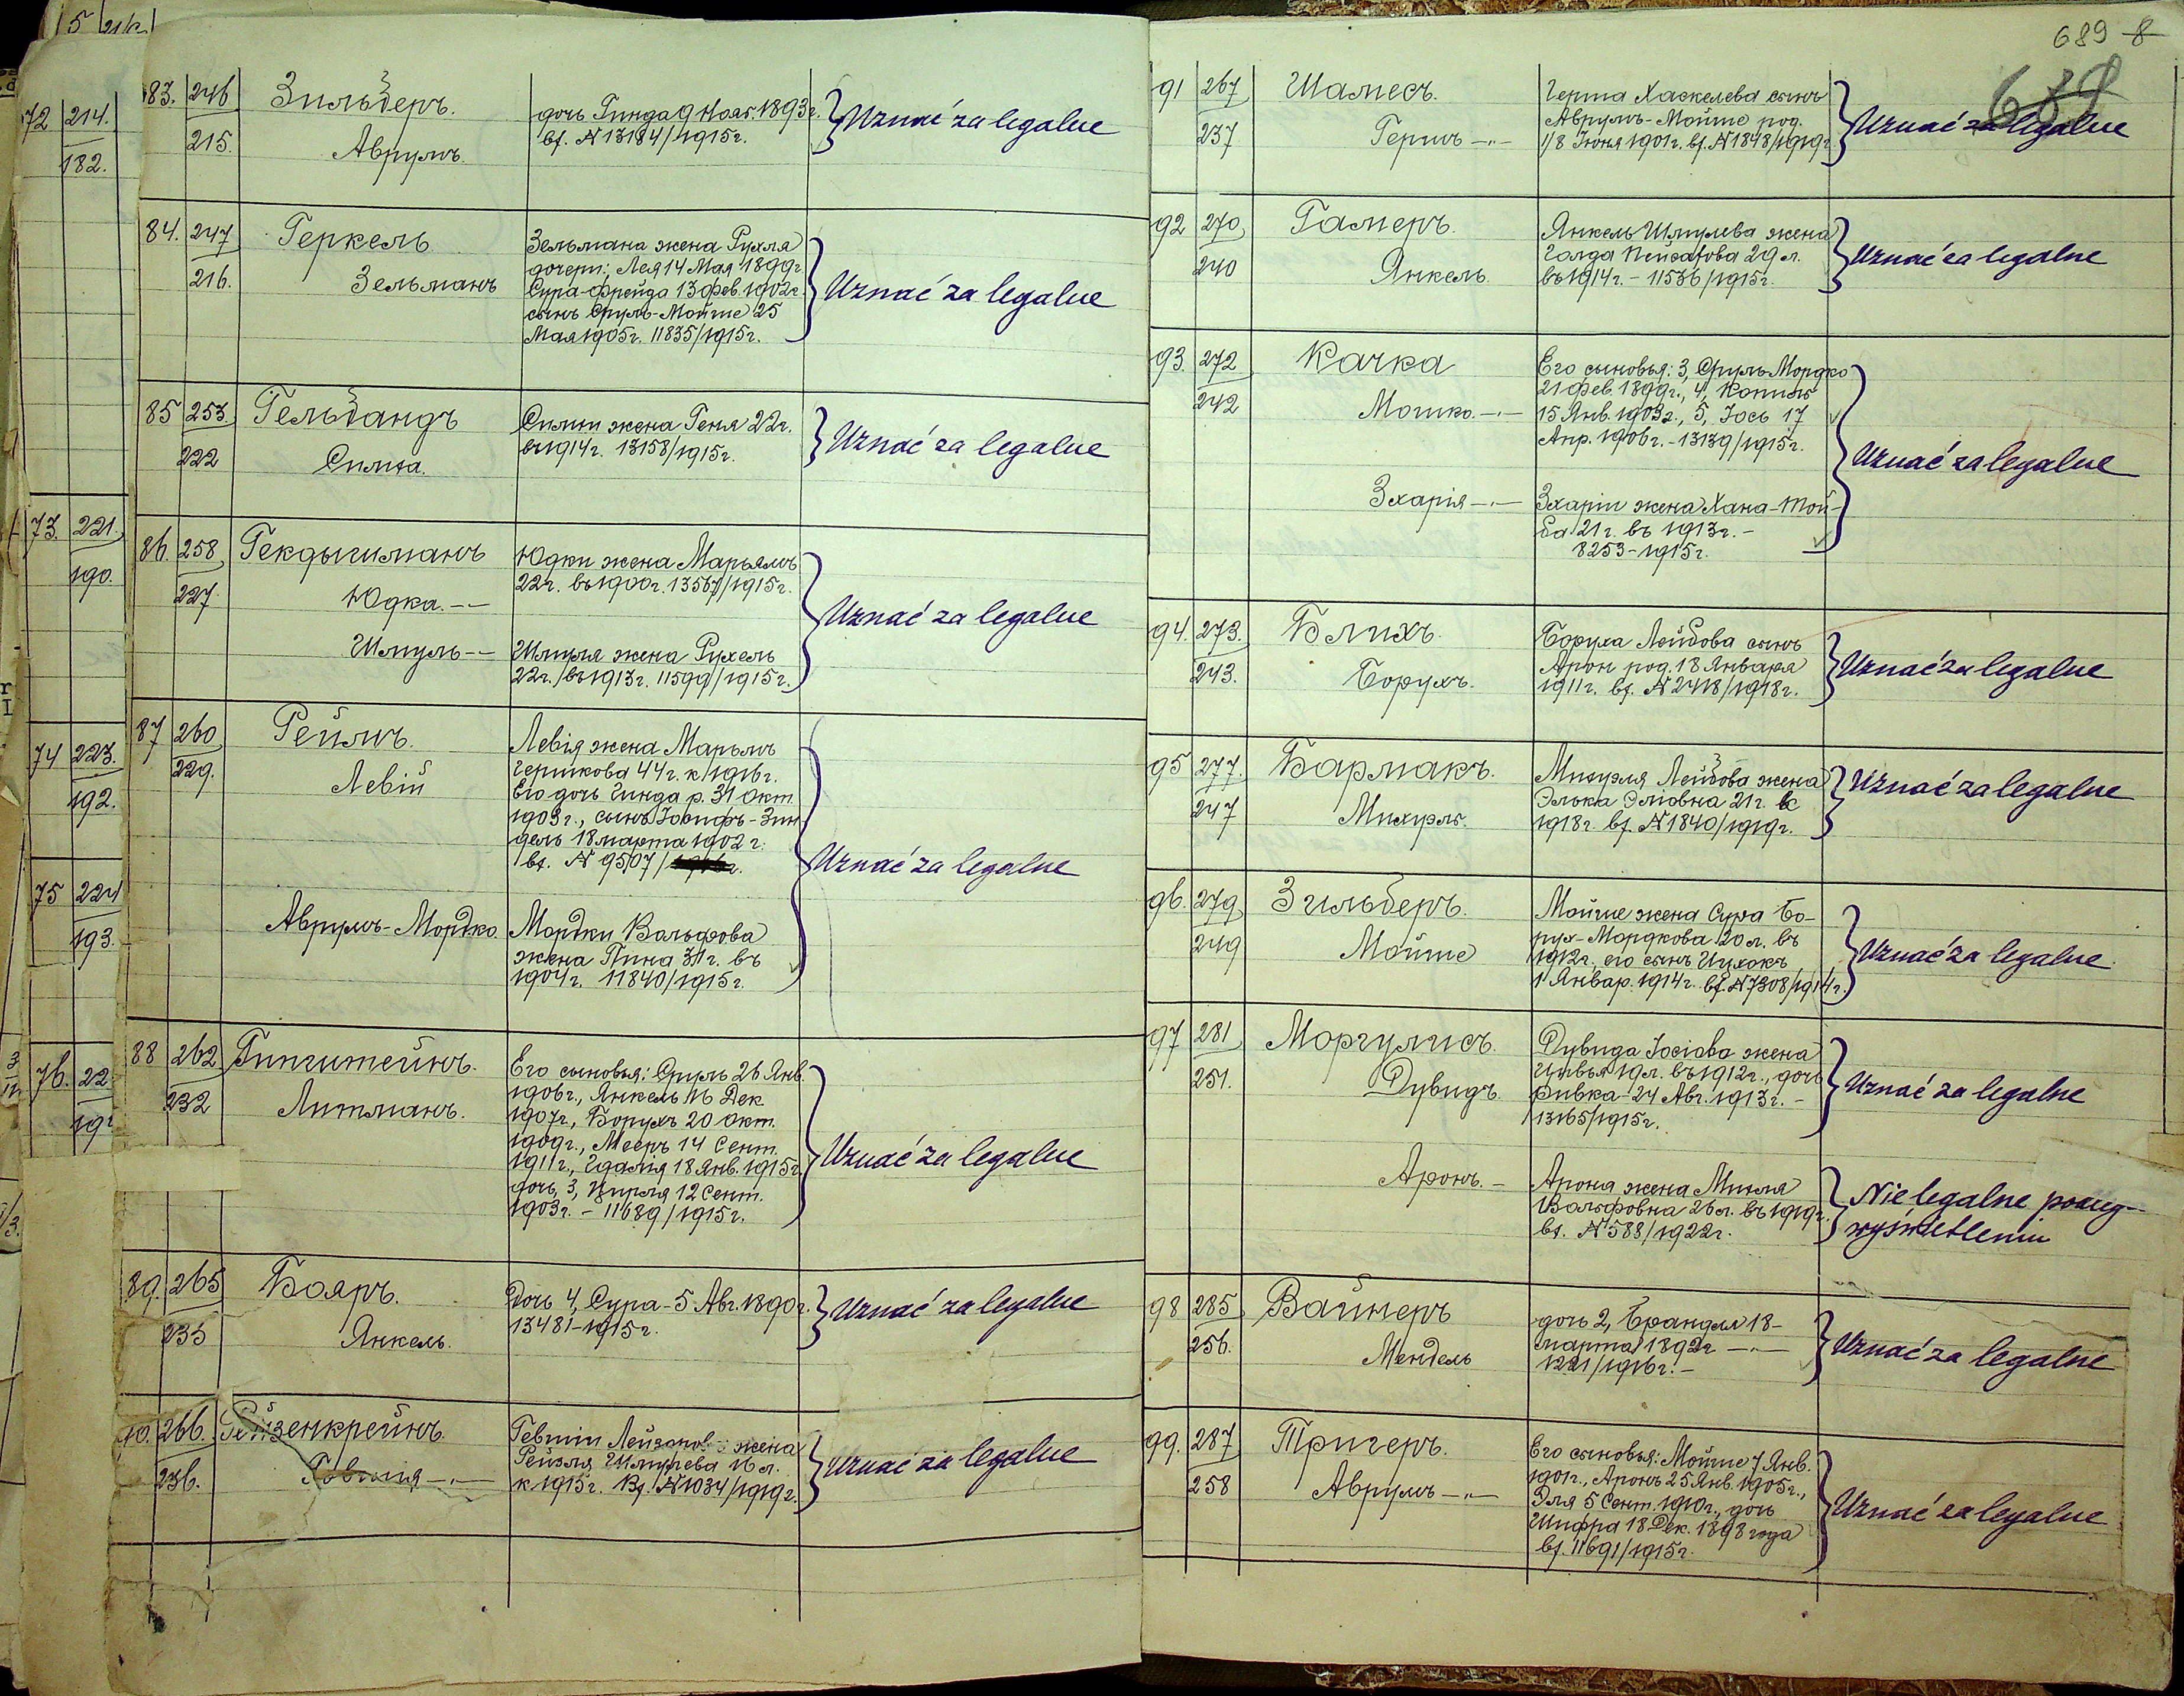 5 216
72 214.
182.
73. 221.
190.
74 223.
192.
75 224
193.
76. 22
192
83. 246
215.
Зильберъ.
Аврумъ.
дочь Гинда 9 Нояб. 1893г.
вх. N 13184/1915г.
Uznać za legalne
84. 247
216.
Геркель
Зельманъ
Зельмана жена Рухля
дочери: Лея 14 Мая 1899г
Сура-Фрейда 13 Фев. 1902г.
сынъ Сруль-Мойше 25
Мая 1905г. 11835/1915г.
Uznać za legalne
85 253.
222
Гельбандъ
Симха.
Симхи жена Геня 22г.
въ 1914г. 13158/1915г.
Uznać za legalne
86. 258
227.
Гекдышманъ
Юдка.--
Шмуль--
Юдки жена Марьямъ
22г. въ 1900г. 13567/1915г.
Шмуля жена Рухель
22г. въ 1913г. 11599/1915г.
Uznać za legalne
87 260
229.
Реймъ.
Левій
Левія жена Марьямъ
Гершкова 44г. к 1916г.
Его дочь Гинда р. 31 Окт.
1903г., сынъ Іосифъ-Зин
дель 18 марта 1902г.
вх. N 9507/
Аврумъ-Мордко.
Мордки Вольфова
жена Пина 31г. въ
1904г. 11840/1915г.
Uznać za legalne
88 262
232
Гингитейнъ.
Литманъ.
Его сыновья: Сруль 26 Янв.
1906г., Янкель 16 Дек
1907г., Борухъ 20 Окт.
1909г., Мееръ 14 Сент.
1911г., Гдалія 18 Янв. 1915г.
дочь, 3, Цирля 12 Сент.
1903г. - 11689/1915г.
Uznać za legalne
89. 265
235
Бояръ.
Янкель.
Дочь 4, Сура-5 Авг. 1890г.
13481-1915г.
Uznać za legalne
90. 266.
236.
Рейзенкрейнъ
Гевшія -"-
Гевшіи Лейзоров жена
Рейзля Шмулева 16 л.
к 1915г. Вх. N 1034/1919г.
Uznać za legalne
689 8
91 267
237
Шамесъ.
Гершъ -"-
Герша Хаскелева сынъ
Аврумъ-Мойше род.
1/8 Іюня 1901г. вх. N 1848/1919г
Uznać za legalne
92 270
240
Гамеръ.
Янкель.
Янкель Шмулева жена
Голда 29 л.
въ 1914г. - 11536/1915г.
Uznać za legalne
93. 272
242
Качка
Мошко. -"-
Его сыновья: 3, Сруль-Мордко
21 Фев. 1899г., 4, Копиль
15 Янв. 1903г., 5, Іось 17
Апр. 1906г. - 13139/1915г.
Зхарія -"-
Зхаріи жена Хана-Той-
ба 21г. въ 1913г. -
8253-1915г.
Uznać za legalne
94. 273.
243.
Блихъ.
Борухъ.
Боруха Лейбова сынъ
Арон род. 18 Января
1911г. вх. N 2418/1918г.
Uznać za legalne
95 277.
247
Бармакъ.
Михуэль.
Михуэля Лейбова жена
Элька Эліовна 21г. въ
1918г. вх. N 1840/1919г.
Uznać za legalne
96. 279
249
Згильберъ.
Мойше
Мойше жена Сура Бо-
рух-Мордкова 20л. въ
1912г. его сынъ Ицхокъ
1 Январ. 1914г. вх. N 7308/1914г.
Uznać za legalne
97 281
251.
Моргулисъ.
Дувидъ.
Дувида Іосіова жена
Цивья 19л. въ 1912г., дочь
Ривка-24 Авг. 1913г. -
13165/1915г.
Uznać za legalne
Аронъ. -
Арона жена Михля
Вольфовна 26л. въ 1919г.
вх. N 588/1922г.
Nielegalne
wyświetleniu
98 285
256.
Вайнеръ
Мендель
дочь 2, Брандля 18-
марта 1892г -"-
1221/1916г. -
Uznać za legalne
99. 287
258
Тригеръ.
Аврумъ -"-
Его сыновья: Мойше 7 Янв.
1901г., Аронъ 25 Янв. 1905г.,
Эля 5 Сент. 1910г., дочь
Шифра 18 Дек. 1898 года
вх. 11691/1915г.
Uznać za legalne